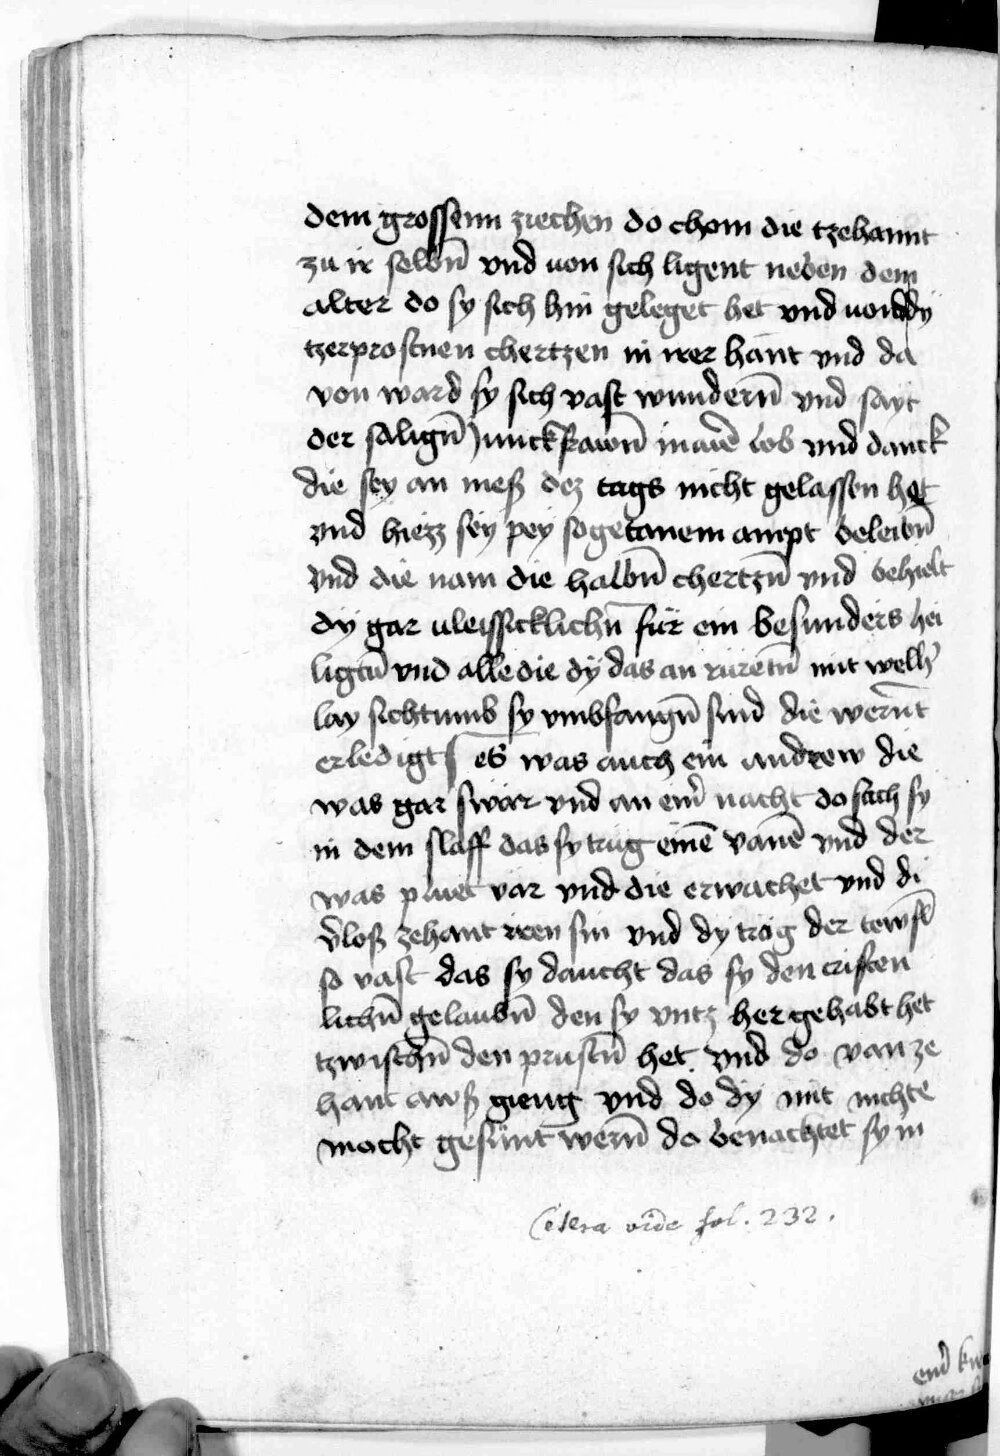 dem grossenn ziechen do chom die tzehannt
zu ir selbn̄ vnd uon sich ligent neben dem
alter do sy sich hin geleget het vnd uond dy
tzerprostnen chertzen in irer hant vnd da
von ward sy sich vast wundern̄ vnd sayt
der salign̄ Junckfrawn̄ mariē lob vnd danck
die sey an meß dez tags nicht gelassen het
vnd hiezz sey pey sogetanem ampt beleibn̄
vnd die nam die halbn̄ chertzn̄ vnd behielt
dy gar uleissicklichn̄ für ein besunders hei
ligtū vnd alle die dy das an rüretn̄ mit welh̄
lay sichtumb sy vmbfangn̄ sind die wern̄t
erledigt es was auch ein andrew die
was gar swär vnd an ein̄ nacht do sach sy
in dem slaff das sy trüg einē vanē vnd der
was pluet var vnd die erwachet vnd di
v̄loß zehant iren sin vnd dy trög der tewfl̄
so vast das sy daucht das sy den cristen
lichn̄ gelaubn̄ den sy vntz her gehabt het
tzwischn̄ den prustn̄ het. vnd do van ze
hant awß gieng vnd do dy mit nichte
mocht gesünt wern̄ do benachtet sy in
Cetera vide fol. 232.
ein̄